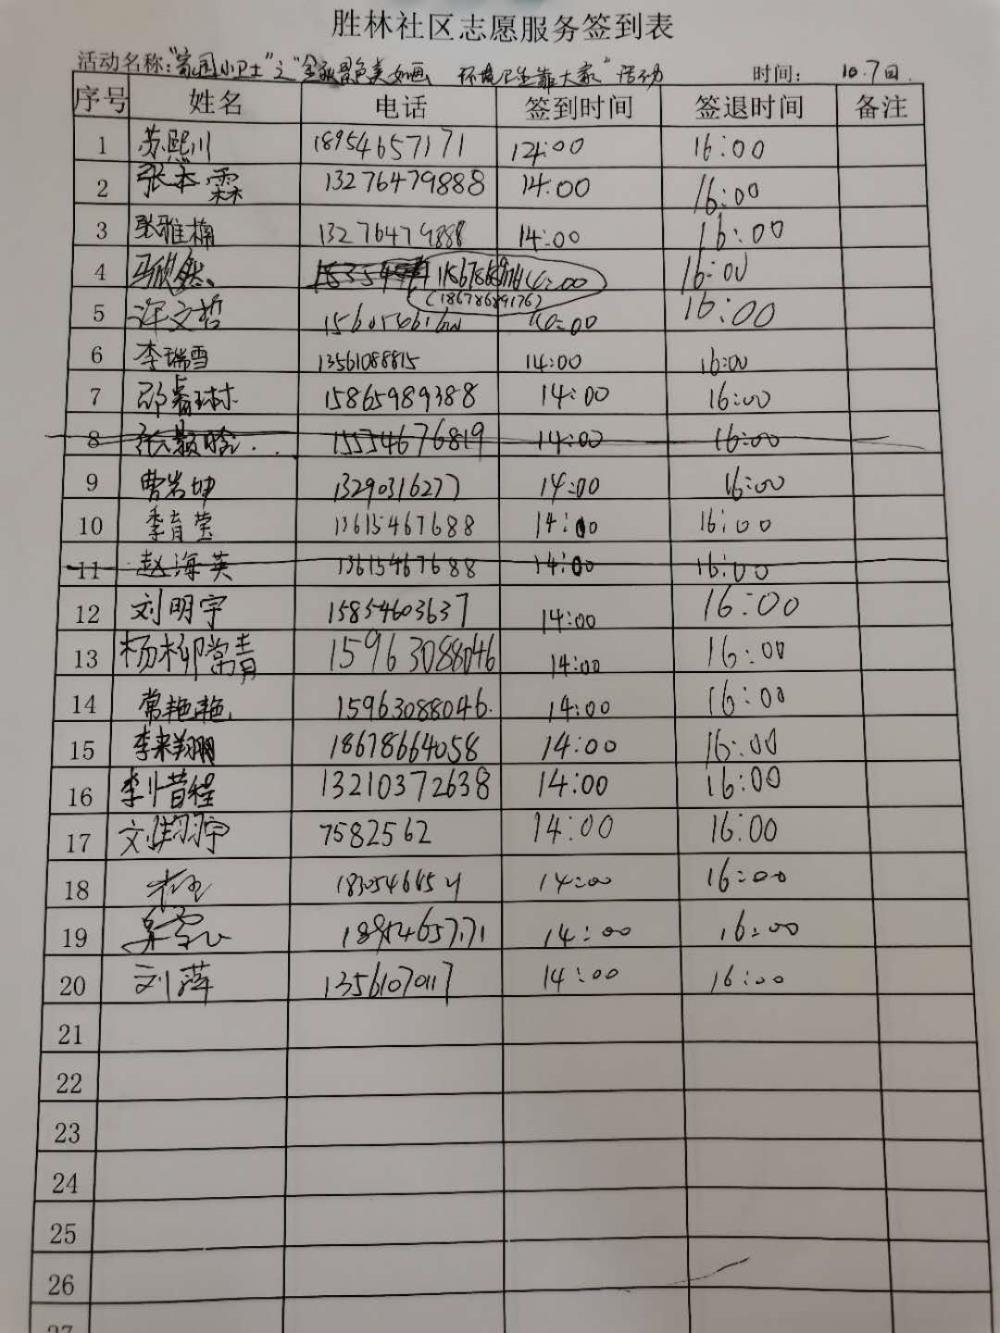 胜林社区志愿服务签到表
活动名称:"家园小卫士"之"金秋景色美如画 环境卫生靠大家"活动 时间: 10.7日
序号 姓名 电话 签到时间 签退时间 备注
1 苏熙川 18954657171 14:00 16:00
2 张本霖 13276479888 14:00 16:00
3 张雅楠 13276479888 14:00 16:00
4 马欣然 14:00 16:00
(18678689176)
5 许文哲 16:00
6 李瑞雪 13561088815 14:00 16:00
7 邵睿琳 15865989388 14:00 16:00
8 张颢晗 15554676819 14:00 16:00
9 曹岩坤 13290316277 14:00 16:00
10 季育莹 13615467688 14:00 16:00
11 赵海英 13615467688 14:00 16:00
12 刘明宇 15854603637 14:00 16:00
13 杨柳常青 15963088046 14:00 16:00
14 常艳艳 15963088046. 14:00 16:00
15 李来翔 18678664058 14:00 16:00
16 李惜程 13210372638 14:00 16:00
17 7582562 14:00 16:00
18 14:00 16:00
19 18954657171 14:00 16:00
20 刘萍 13561070117 14:00 16:00
21
22
23
24
25
26
27